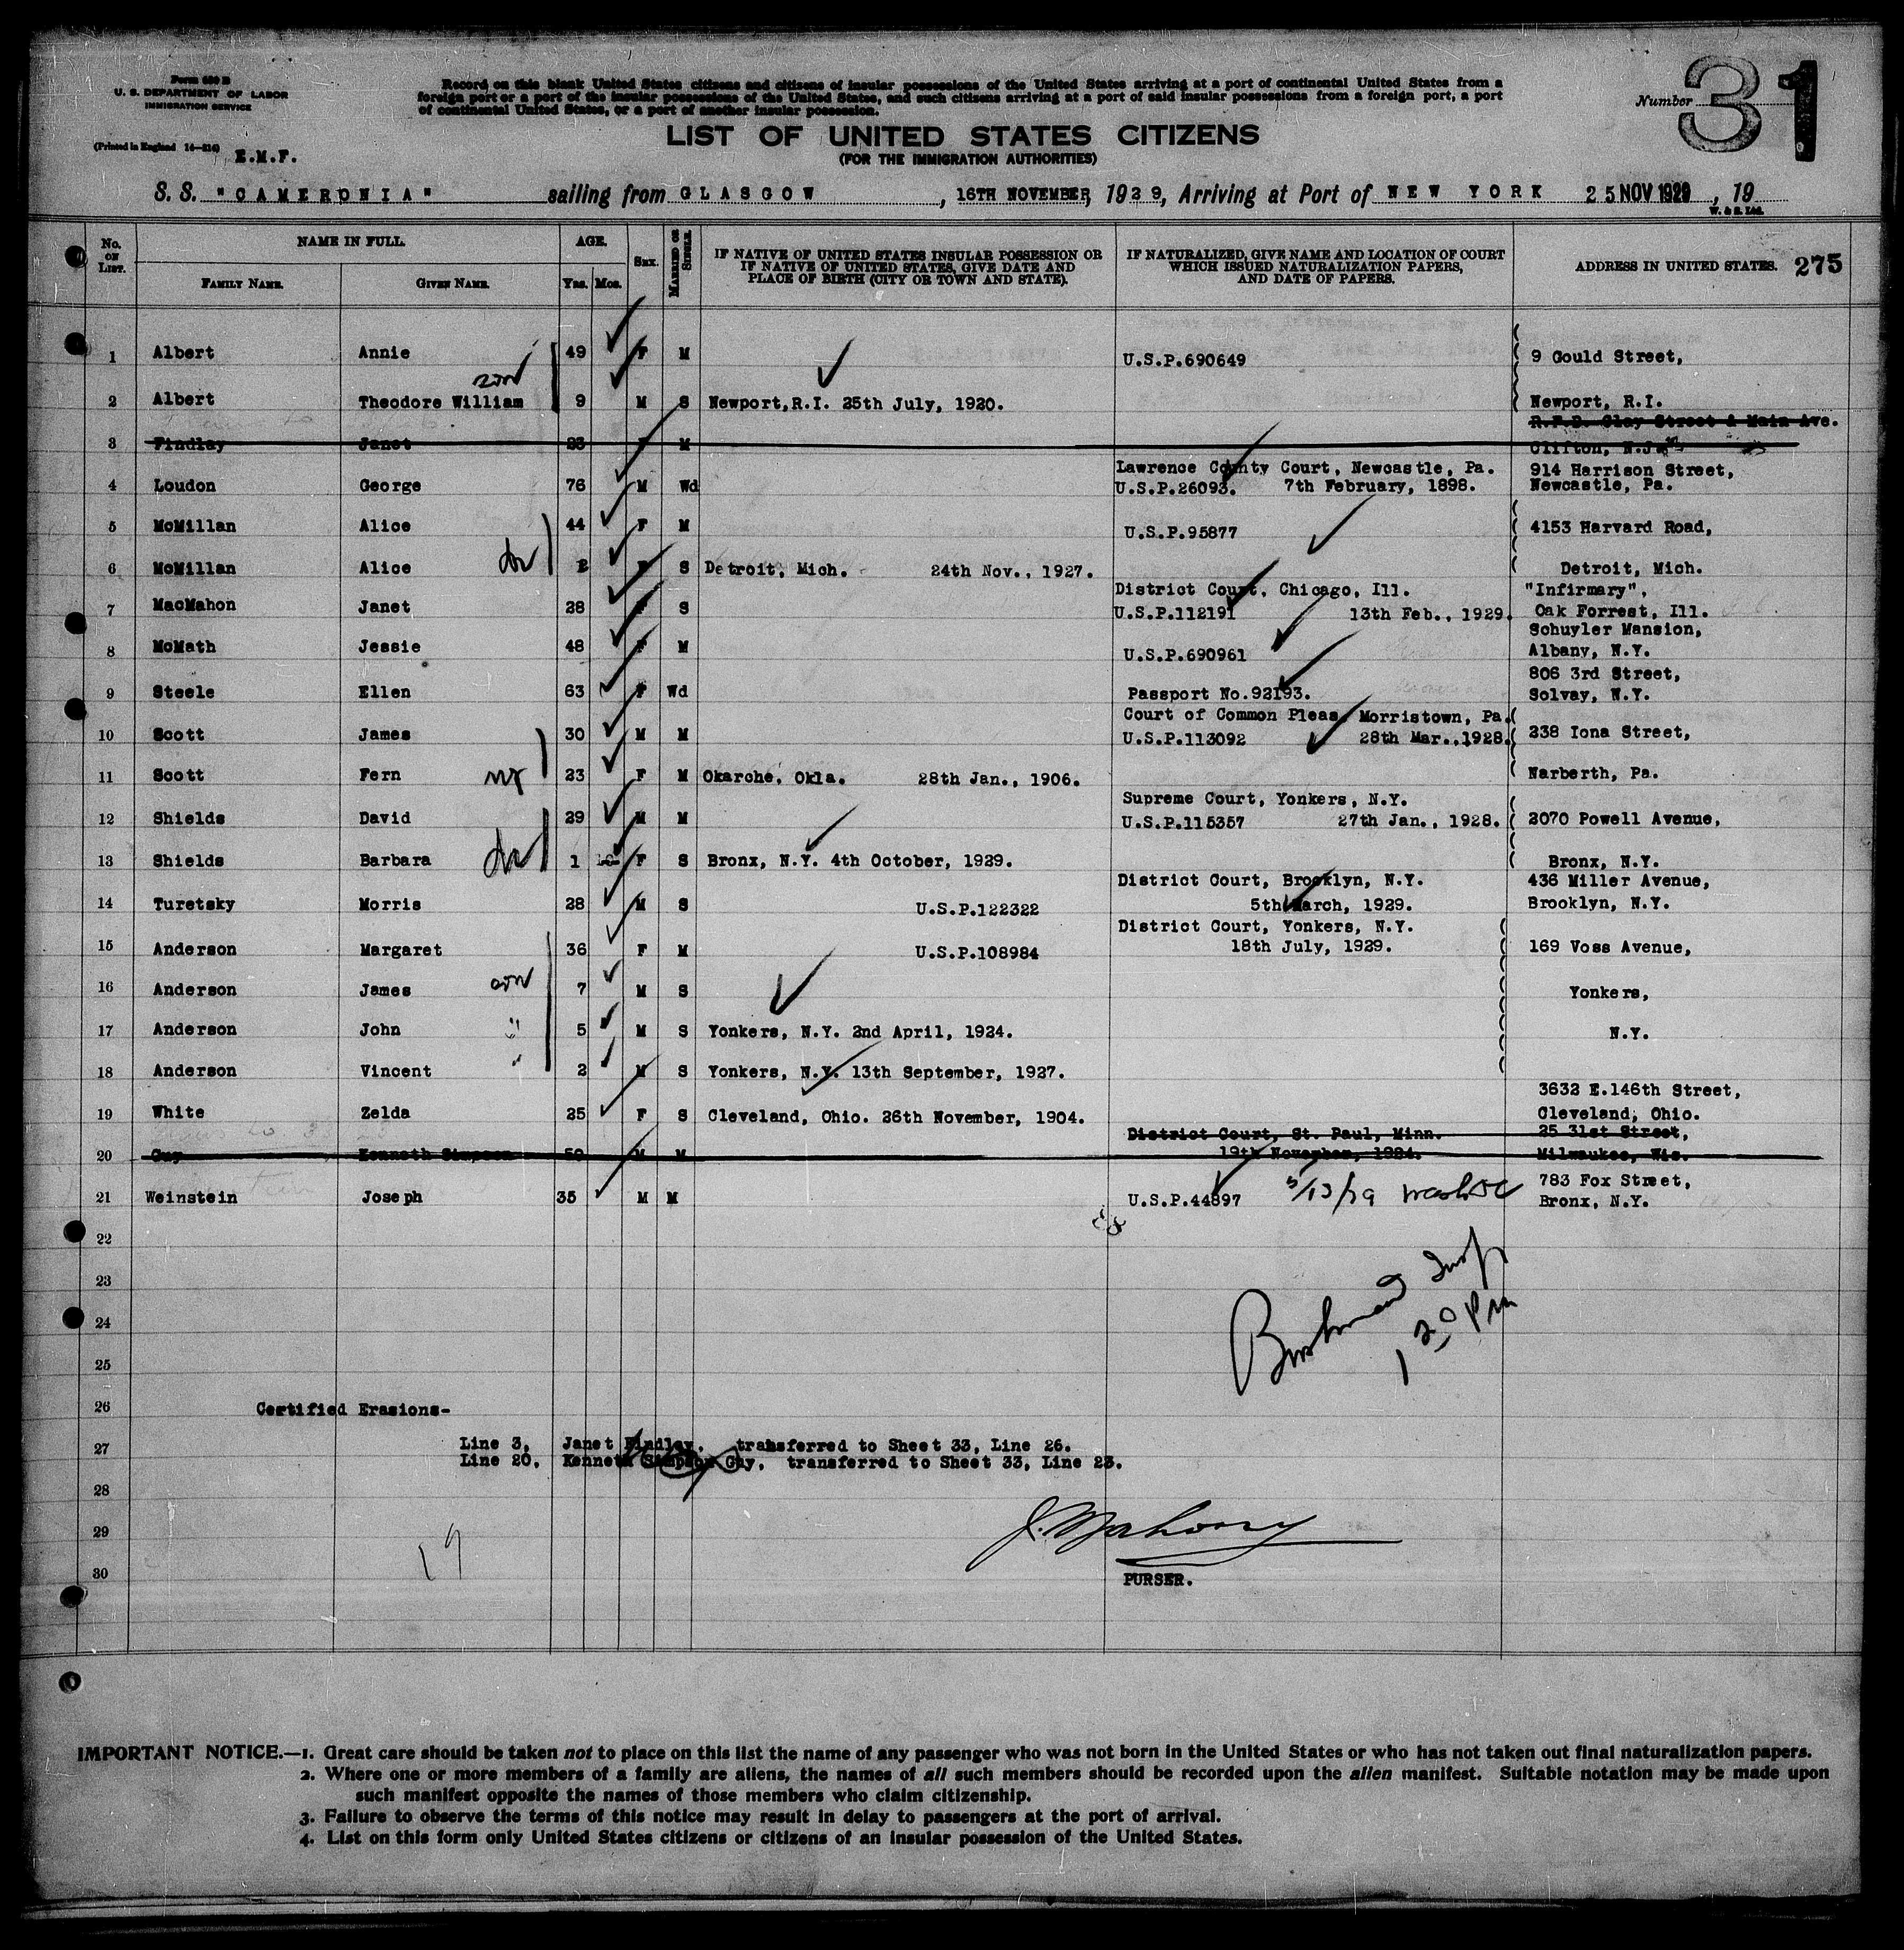 Form 630 B
U. S. DEPARTMENT OF LABOR
IMMIGRATION SERVICE
(Printed in England 14—214)
E.M.F.
Record on this blank United States citizens and citizens of insular possessions of the United States arriving at a port of continental United States from a
foreign port or a port of the insular possessions of the United States, and such citizens arriving at a port of said insular possessions from a foreign port, a port
of continental United States, or a port of another insular possession.
Number 31
LIST OF UNITED STATES CITIZENS
(FOR THE IMMIGRATION AUTHORITIES)
S. S. "CAMERONIA" sailing from GLASGOW, 16TH NOVEMBER, 1929, Arriving at Port of NEW YORK 25 NOV 1929, 19
W. & S. Ltd.
No. ON LIST. NAME IN FULL. AGE. SEX. MARRIED OR SINGLE. IF NATIVE OF UNITED STATES INSULAR POSSESSION OR IF NATIVE OF UNITED STATES, GIVE DATE AND PLACE OF BIRTH (CITY OR TOWN AND STATE). IF NATURALIZED, GIVE NAME AND LOCATION OF COURT WHICH ISSUED NATURALIZATION PAPERS, AND DATE OF PAPERS. ADDRESS IN UNITED STATES. 275
FAMILY NAME. GIVEN NAME. Yrs. Mos.
1 Albert Annie 49 F M U.S.P.690649 9 Gould Street,
son
2 Albert Theodore William 9 M S Newport,R.I. 25th July, 1920. Newport, R.I.
R.F.D. Clay Street & Main Ave.
3 Findlay Janet 23 F M Clifton, N.J.
Lawrence County Court, Newcastle, Pa. 914 Harrison Street,
4 Loudon George 76 M Wd U.S.P.26093. 7th February, 1898. Newcastle, Pa.
5 McMillan Alice 44 F M U.S.P.95877 4153 Harvard Road,
6 McMillan Alice 2 F S Detroit, Mich. 24th Nov., 1927. Detroit, Mich.
District Court, Chicago, Ill. "Infirmary",
7 MacMahon Janet 28 F S U.S.P.112191 13th Feb., 1929. Oak Forrest, Ill.
Schuyler Mansion,
8 McMath Jessie 48 F M U.S.P.690961 Albany, N.Y.
806 3rd Street,
9 Steele Ellen 63 F Wd Passport No.92193. Solvay, N.Y.
Court of Common Pleas, Morristown, Pa.
10 Scott James 30 M M U.S.P.113092 28th Mar., 1928. 238 Iona Street,
11 Scott Fern 23 F M Okarche, Okla. 28th Jan., 1906. Narberth, Pa.
Supreme Court, Yonkers, N.Y.
12 Shields David 29 M M U.S.P.115357 27th Jan., 1928. 2070 Powell Avenue,
13 Shields Barbara 1 F S Bronx, N.Y. 4th October, 1929. Bronx, N.Y.
District Court, Brooklyn, N.Y. 436 Miller Avenue,
14 Turetsky Morris 28 M S U.S.P.122322 5th March, 1929. Brooklyn, N.Y.
District Court, Yonkers, N.Y.
15 Anderson Margaret 36 F M U.S.P.108984 18th July, 1929. 169 Voss Avenue,
16 Anderson James son 7 M S Yonkers,
17 Anderson John " 5 M S Yonkers, N.Y. 2nd April, 1924. N.Y.
18 Anderson Vincent " 2 M S Yonkers, N.Y. 13th September, 1927.
3632 E.146th Street,
19 White Zelda 25 F S Cleveland, Ohio. 26th November, 1904. Cleveland, Ohio.
District Court, St. Paul, Minn. 25 31st Street,
20 Guy Kenneth Simpson 50 M M 19th November, 1924. Milwaukee, Wis.
783 Fox Street,
21 Weinstein Joseph 35 M M U.S.P.44897 Bronx, N.Y.
22
23
24
1 20 PM
25
26 Certified Erasions-
27 Line 3, Janet Findlay, transferred to Sheet 33, Line 26.
Line 20, Kenneth Simpson Guy, transferred to Sheet 33, Line 23.
28
29 J. Mahony
19
30 PURSER.
IMPORTANT NOTICE.—1. Great care should be taken not to place on this list the name of any passenger who was not born in the United States or who has not taken out final naturalization papers.
2. Where one or more members of a family are aliens, the names of all such members should be recorded upon the alien manifest. Suitable notation may be made upon
such manifest opposite the names of those members who claim citizenship.
3. Failure to observe the terms of this notice may result in delay to passengers at the port of arrival.
4. List on this form only United States citizens or citizens of an insular possession of the United States.